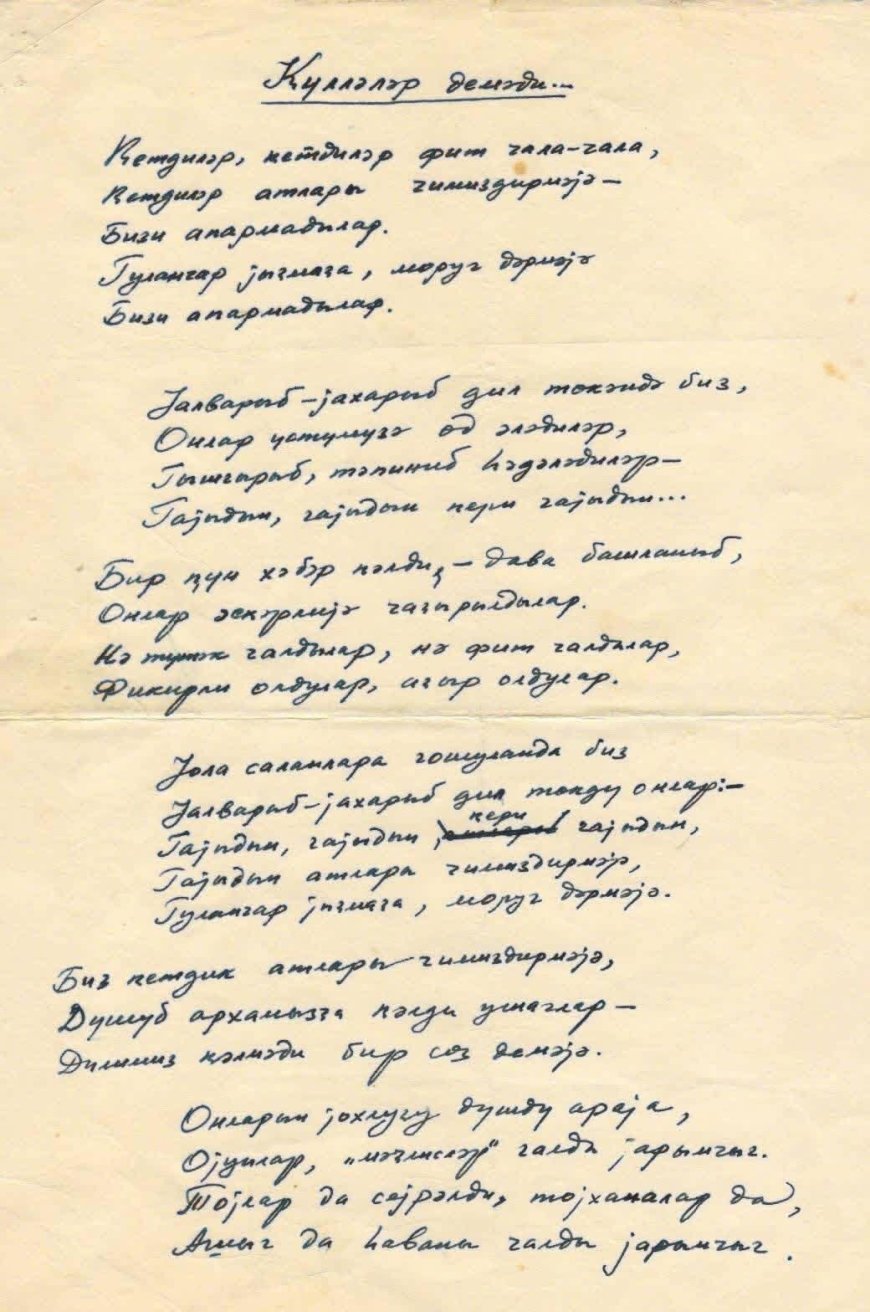 Ҝүлләләр демәди...
Ҝетдиләр, ҝетдиләр фит чала-чала,
Ҝетдиләр атлары чимиздирмәјә —
Бизи апармадылар.
Гуланчар јығмаға, моруг дәрмәјә
Бизи апармадылар.
Јалварыб-јахарыб дил төкәндә биз,
Онлар үстүмүзә од әләдиләр,
Гышгырыб, тәпиниб һәдәләдиләр —
Гајыдын, гајыдын ҝери гајыдын...
Бир ҝүн хәбәр ҝәлди, — дава башланыб,
Онлар әскәрлијә чағырылдылар.
Нә түтәк чалдылар, нә фит чалдылар,
Фикирли олдулар, ағыр олдулар.
Јола саланлара гошуланда биз
Јалварыб-јахарыб дил төкдү онлар: —
Гајыдын, гајыдын, ҝери гајыдын,
Гајыдын атлары чимиздирмәјә,
Гуланчар јығмаға, моруг дәрмәјә.
Биз ҝетдик атлары чимиздирмәјә,
Дүшүб архамызҹа ҝәлди ушаглар —
Дилимиз ҝәлмәди бир сөз демәјә.
Онларын јохлуғу дүшдү араја,
Ојунлар, „мәҹлисләр" галды јарымчыг.
Тојлар да сејрәлди, тојханалар да,
Ашыг да һаваны чалды јарымчыг.